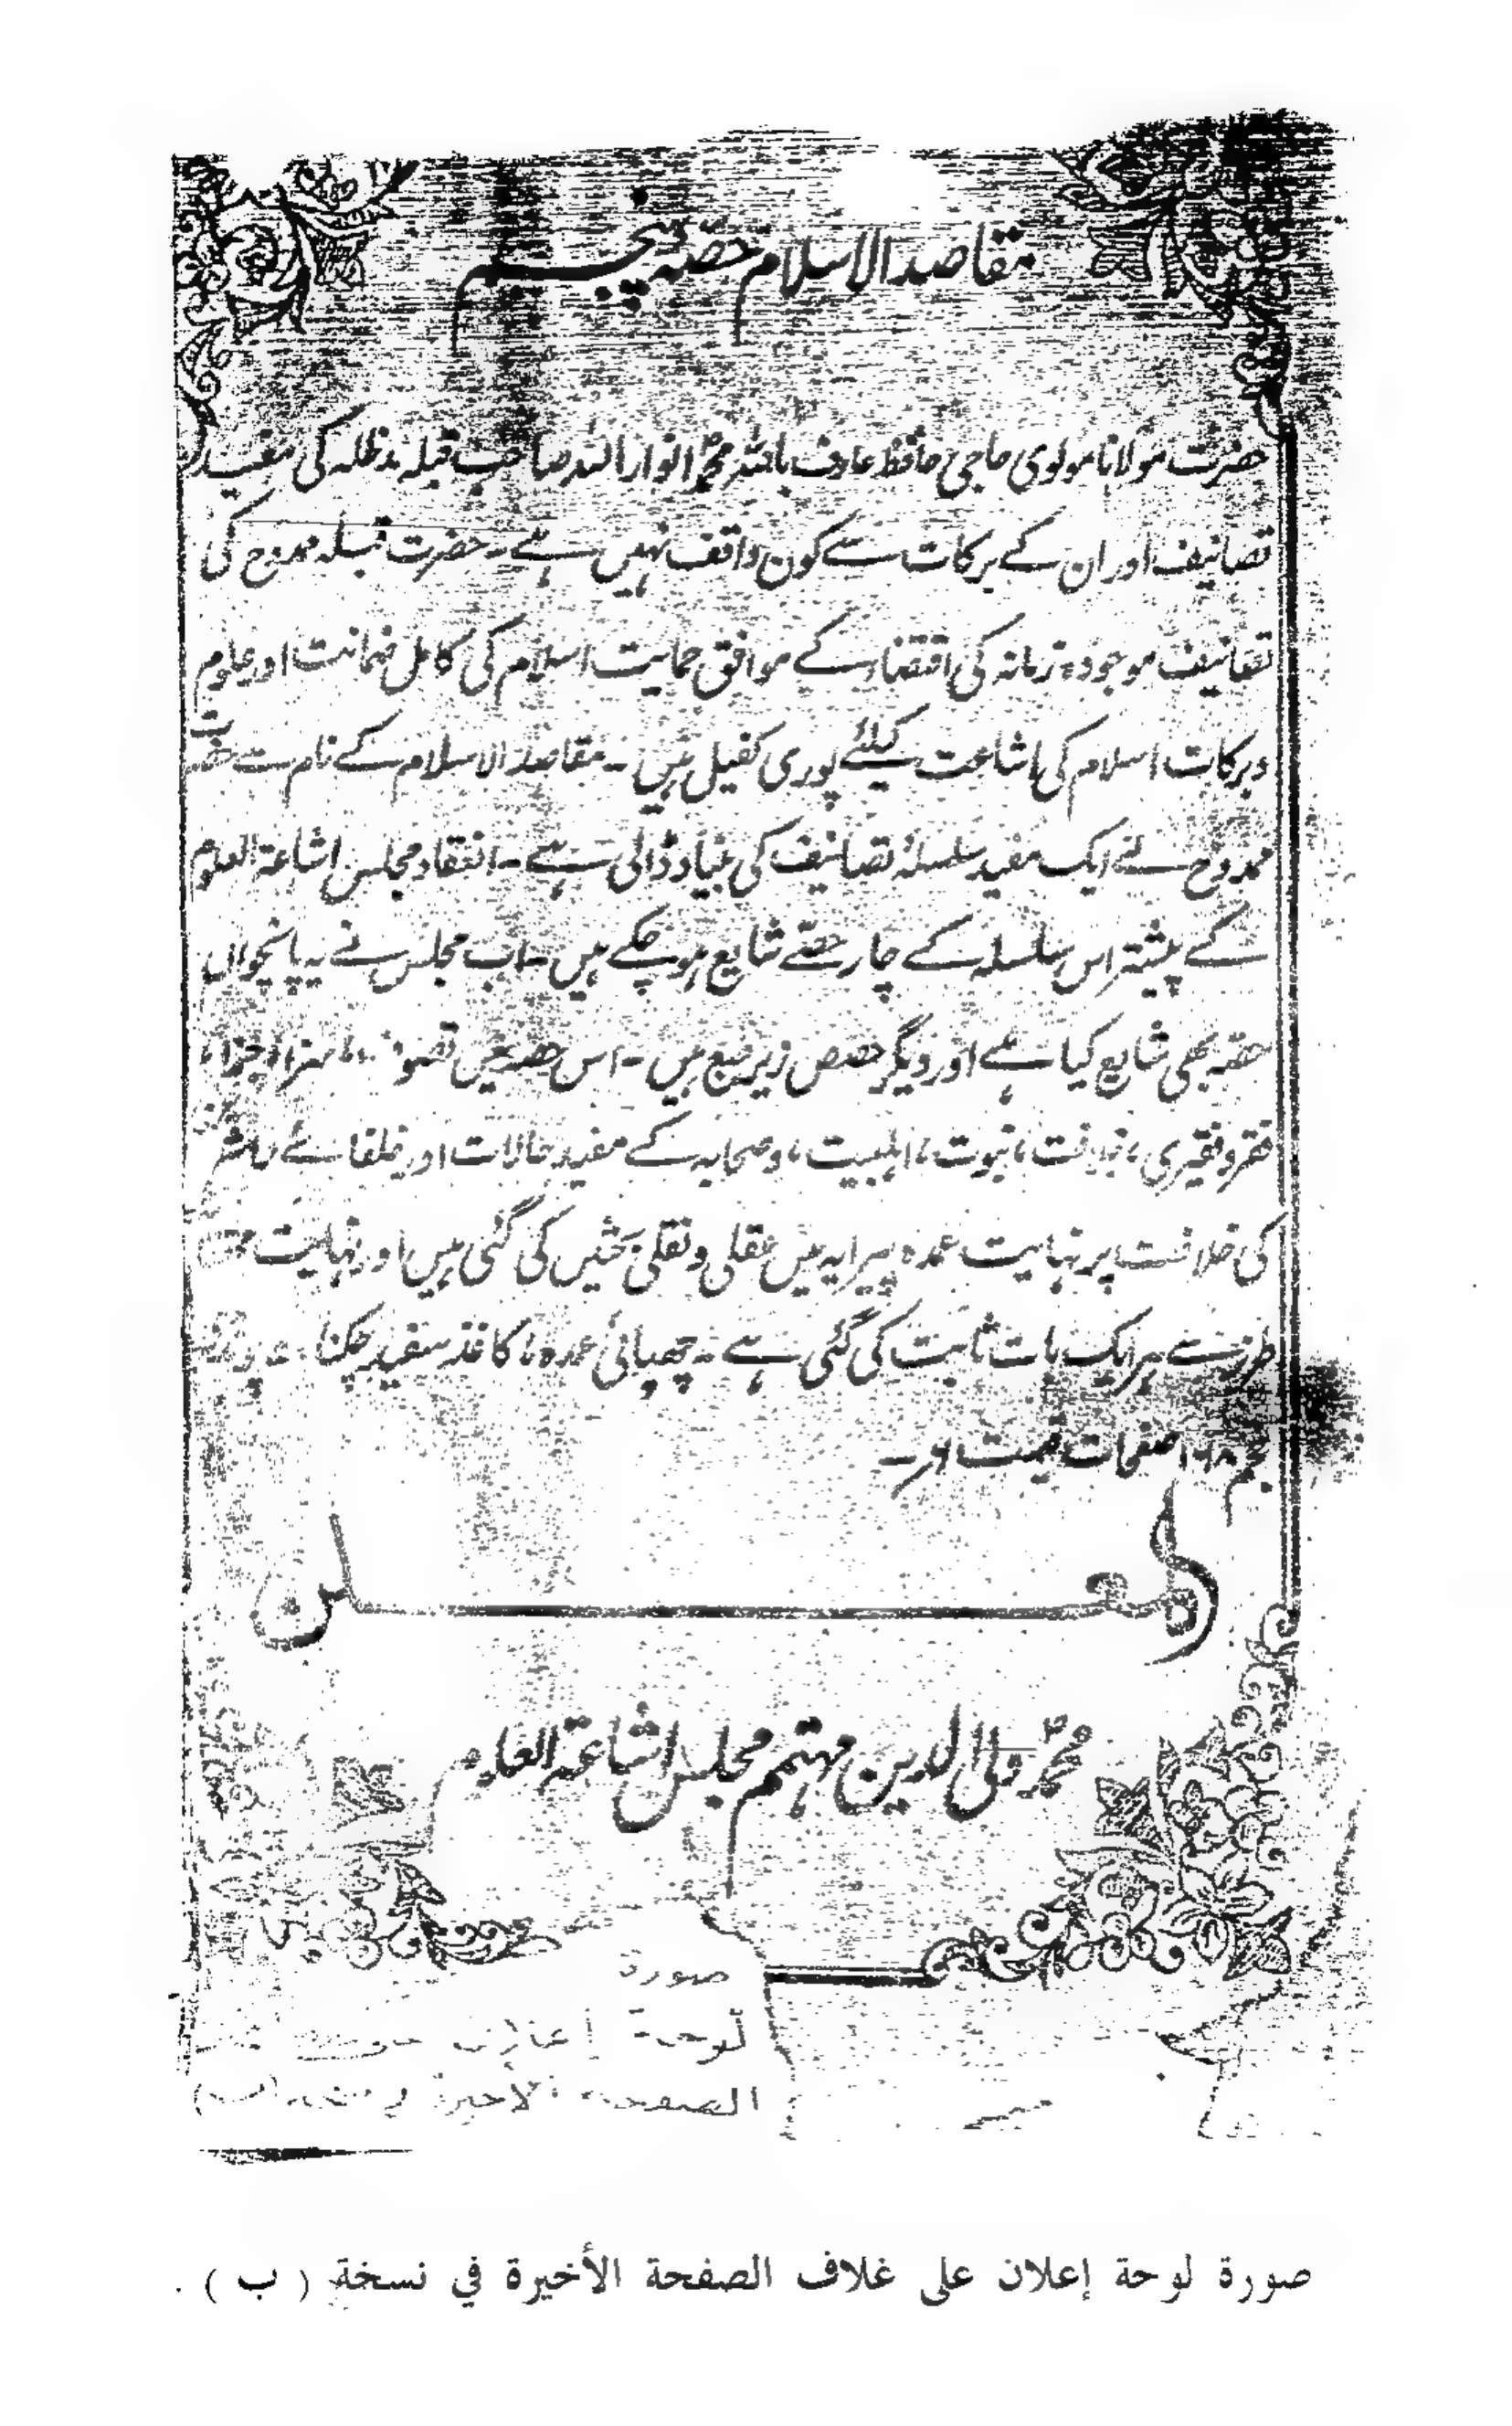 مقاصد الاسلام حصّہ پنجم
حضرت مولانا مولوی حاجی حافظ عارف باللہ محمدؐ انوار اللہ صاحب قبلہ مدظلہ کی مفید
تصانیف اور ان کے برکات سے کون واقف نہیں ہے۔ حضرت قبلہ ممدوح کی
تصانیف موجودہ زمانہ کی اقتضاء کے موافق حمایت اسلام کی کامل ضمانت اور علوم
وبرکات اسلام کی اشاعت کیلئے پوری کفیل ہیں۔ مقاصد الاسلام کے نام سے حضرت
ممدوح نے ایک مفید سلسلۂ تصانیف کی بنیاد ڈالی ہے۔ انعقاد مجلس اشاعۃ العلوم
کے پیشتر اس سلسلہ کے چار حصّے شایع ہو چکے ہیں۔ اب مجلس نے یہ پانچواں
حصّہ بھی شایع کیا ہے اور دیگر حصص زیر طبع ہیں۔ اس حصہ میں تصوف،
فقر وفقیری، نبوت، اہلبیت، وصحابہ کے مفید حالات اور خلفائے
کی خلافت پر نہایت عمدہ پیرایہ میں عقلی و نقلی بحثیں کی گئی ہیں اور نہایت
طرز سے ہر ایک بات ثابت کی گئی ہے۔ چھپائی عمدہ، کاغذ سفید چکنا،
حجم صفحات قیمت
المعلن
محمدؐ ولی الدین مہتمم مجلس اشاعۃ العلوم
صورة
لوحة إعلان
الصفحة الأخيرة (ب)
صورة لوحة إعلان على غلاف الصفحة الأخيرة في نسخة ( ب ) .